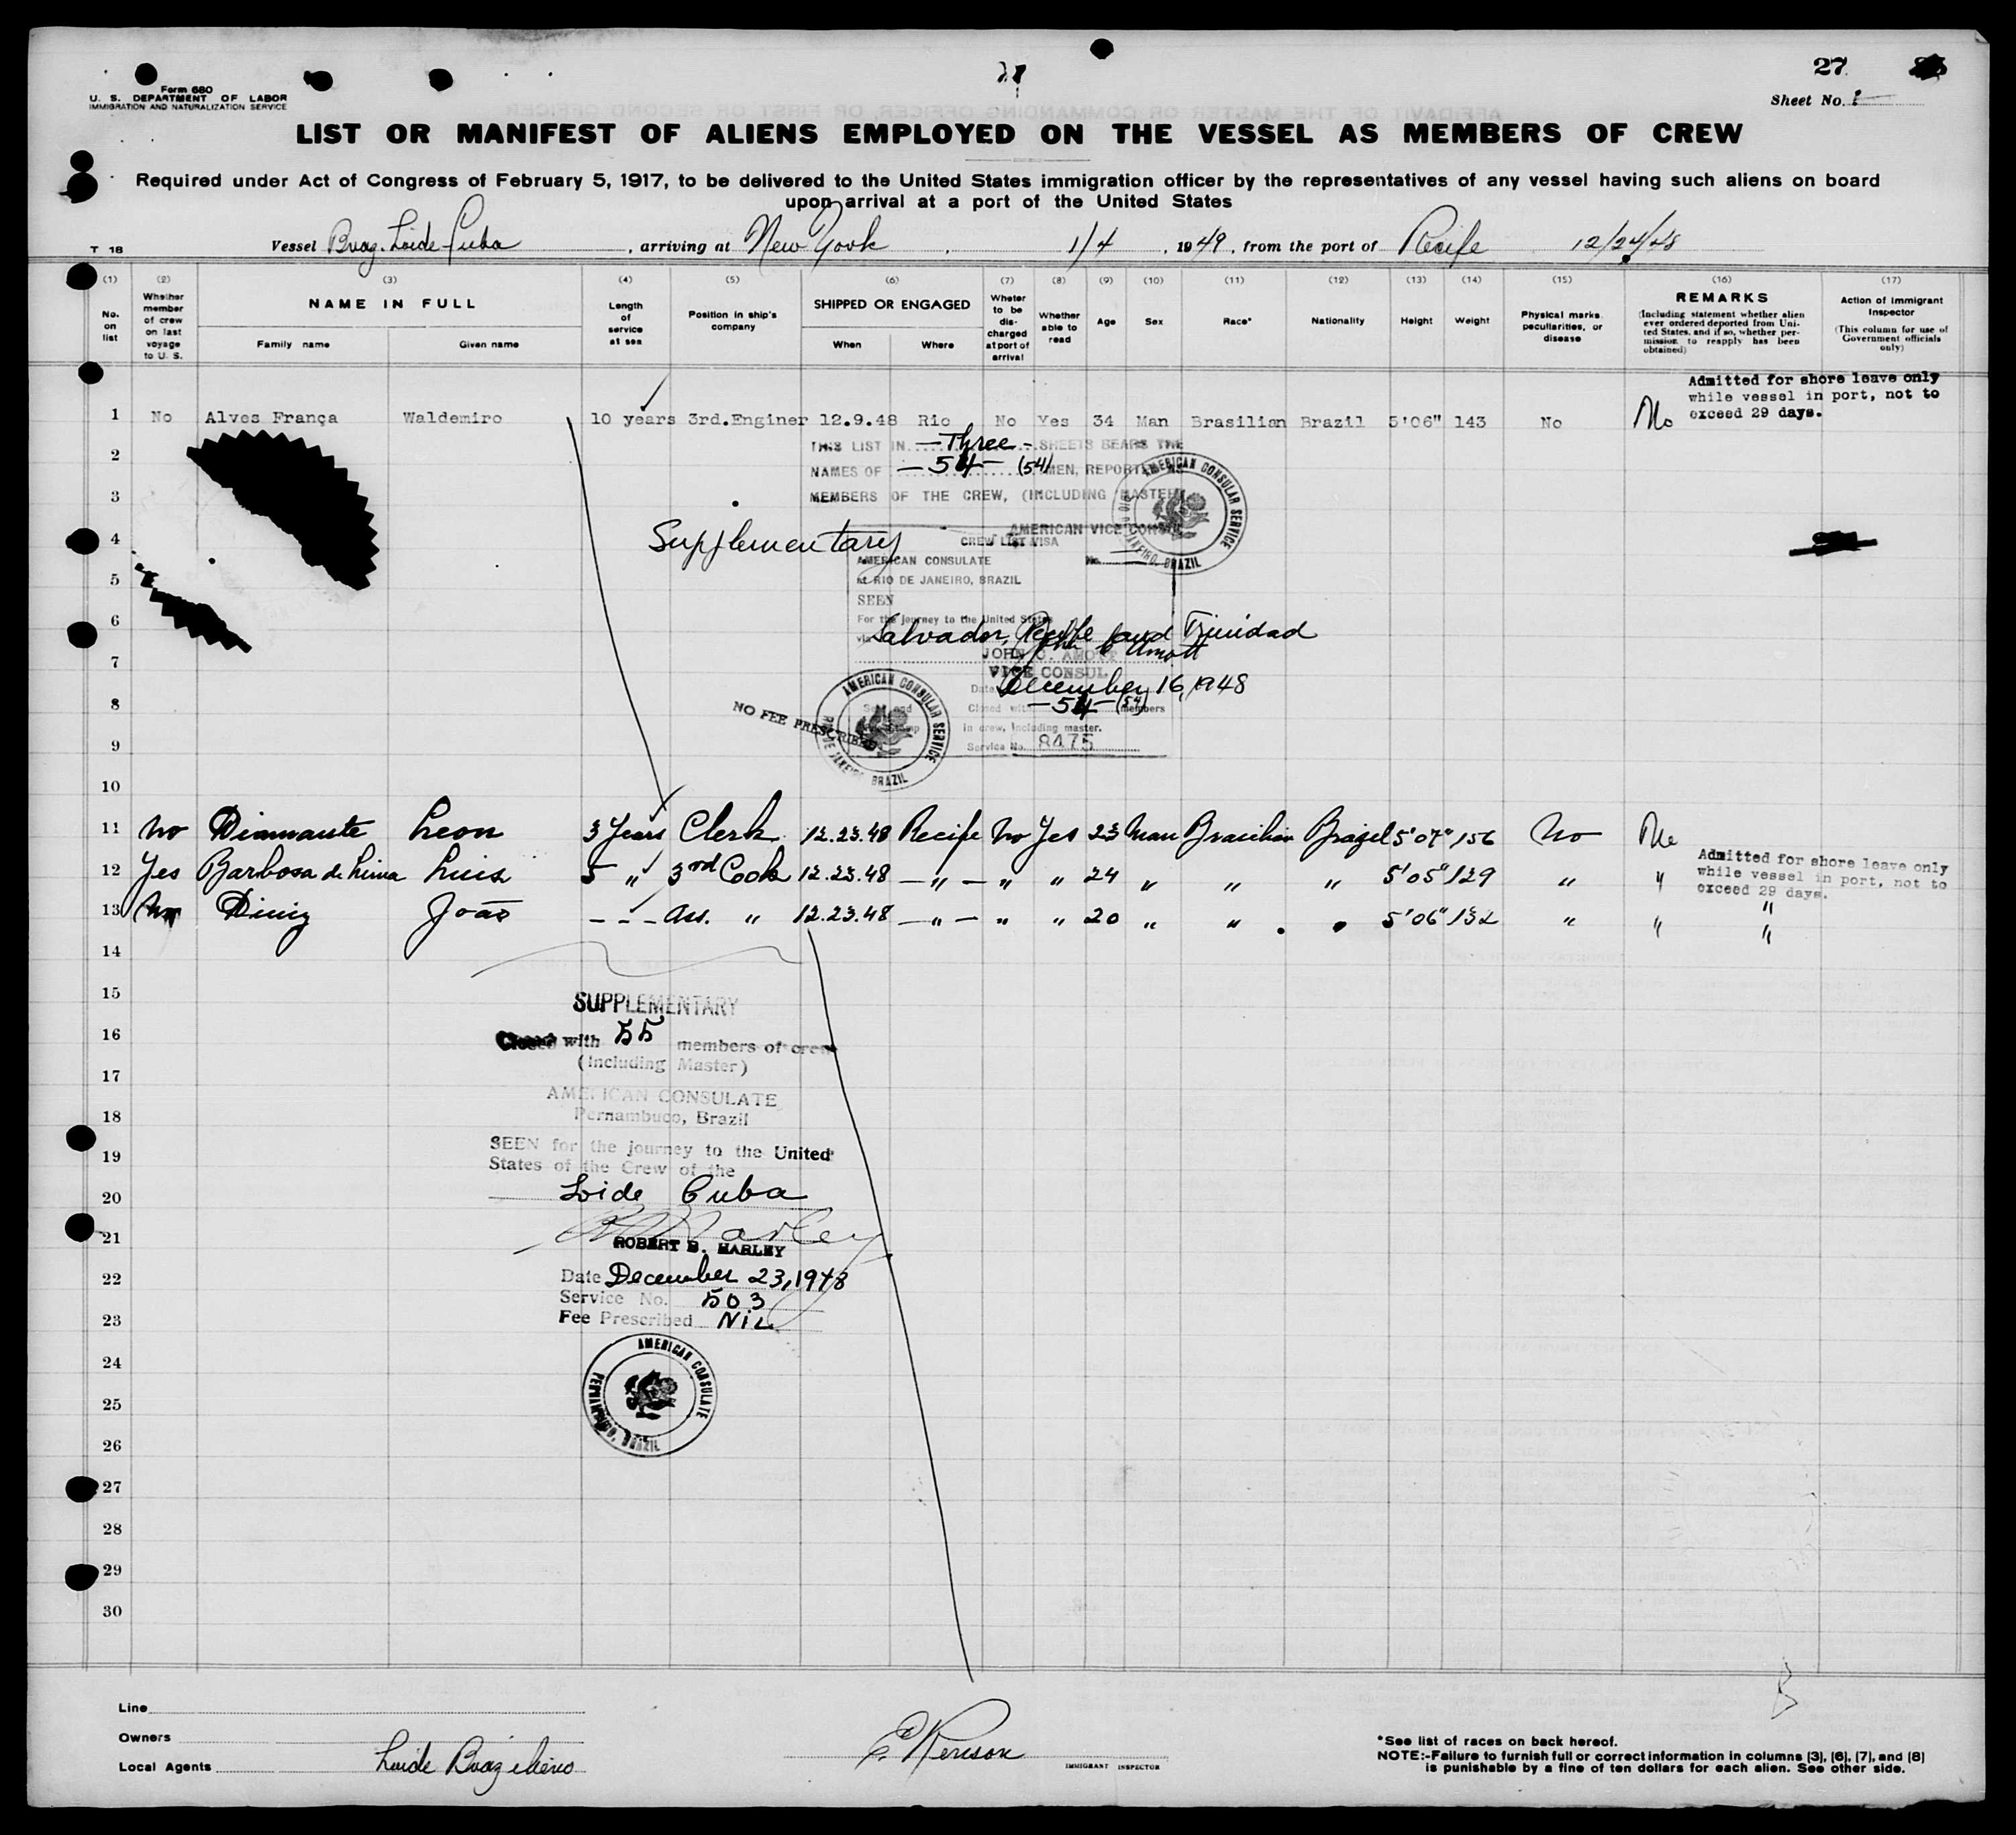 27
Form 680
U. S. DEPARTMENT OF LABOR
IMMIGRATION AND NATURALIZATION SERVICE
Sheet No.
LIST OR MANIFEST OF ALIENS EMPLOYED ON THE VESSEL AS MEMBERS OF CREW
Required under Act of Congress of February 5, 1917, to be delivered to the United States immigration officer by the representatives of any vessel having such aliens on board
upon arrival at a port of the United States
T 18 Vessel Braz. Loide Cuba, arriving at New York, 1/4, 1949, from the port of Recife 12/24/48
(1) (2) (3) (4) (5) (6) (7) (8) (9) (10) (11) (12) (13) (14) (15) (16) (17)
No. on list
Whether member of crew on last voyage to U. S.
NAME IN FULL
Family name Given name
Length of service at sea
Position in ship's company
SHIPPED OR ENGAGED
When Where
Wheter to be dis- charged at port of arrival
Whether able to read
Age
Sex
Race*
Nationality
Height
Weight
Physical marks, peculiarities, or disease
REMARKS
(Including statement whether alien ever ordered deported from Uni- ted States, and if so, whether per- mission to reapply has been obtained)
Action of Immigrant Inspector
(This column for use of Government officials only)
Admitted for shore leave only
while vessel in port, not to
exceed 29 days.
1 No Alves França Waldemiro 10 years 3rd.Enginer 12.9.48 Rio No Yes 34 Man Brasilian Brazil 5'06" 143 No No
2
THIS LIST IN -Three- SHEETS BEARS THE
NAMES OF -54- (54) MEN, REPORTED AS
3
MEMBERS OF THE CREW, (INCLUDING MASTER)
AMERICAN VICE CONSUL
4
Supplementary
CREW LIST VISA
AMERICAN CONSULATE No.
5
At RIO DE JANEIRO, BRAZIL
SEEN
6
For the journey to the United States
via Salvador, Recife and Trinidad
7
JOHN C. AMOTT
VICE CONSUL
Date December 16, 1948
8
Closed with -54- (54) members
in crew, including master.
9
Service No. 8475
NO FEE PRESCRIBED
AMERICAN CONSULAR SERVICE
RIO DE JANEIRO, BRAZIL
AMERICAN CONSULAR SERVICE
RIO DE JANEIRO, BRAZIL
10
11 No Diamante Leon 3 Years Clerk 12.23.48 Recife No Yes 23 Man Brasilian Brazil 5'07" 156 No No
12 Yes Barbosa de Lima Luis 5 " 3rd Cook 12.23.48 -"- " " 24 " " " 5'05" 129 " "
Admitted for shore leave only
while vessel in port, not to
exceed 29 days.
13 No Diniz João --- Ass. " 12.23.48 -"- " " 20 " " " 5'06" 132 " " "
"
14
15
SUPPLEMENTARY
16
Closed with 55 members of crew
(including Master)
17
AMERICAN CONSULATE
18
Pernambuco, Brazil
19
SEEN for the journey to the United
States of the Crew of the
20
Loide Cuba
21
ROBERT B. HARLEY
22
Date December 23, 1948
Service No. 503
23
Fee Prescribed Nil
24
AMERICAN CONSULATE
PERNAMBUCO, BRAZIL
25
26
27
28
29
30
Line
Owners
Local Agents Loide Brazileiro
IMMIGRANT INSPECTOR
*See list of races on back hereof.
NOTE:-Failure to furnish full or correct information in columns (3), (6), (7), and (8)
is punishable by a fine of ten dollars for each alien. See other side.